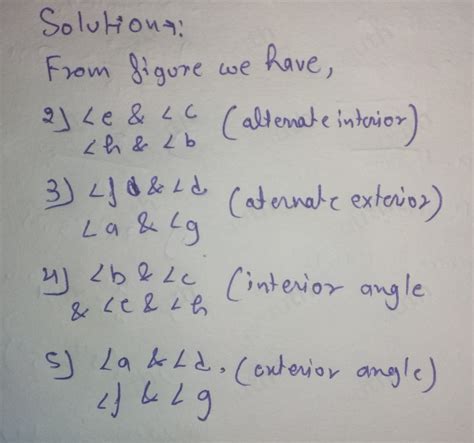 Solution:
From figure we have,
2) ∠e & ∠c (alternate interior)
∠h & ∠b
3) ∠f & ∠d (aternate exterior)
∠a & ∠g
4) ∠b & ∠c (interior angle
& ∠e & ∠h
5) ∠a & ∠d. (exterior angle)
∠f & ∠g